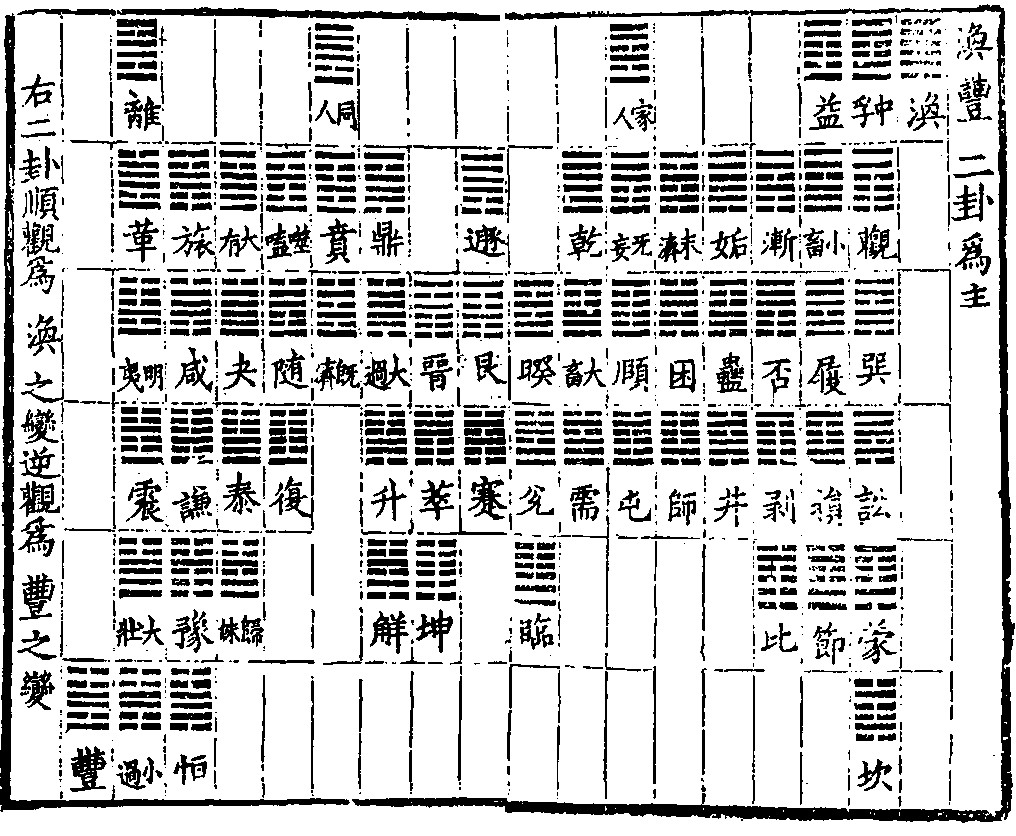 渙豐 二卦為主
渙
中孚
觀
巽
訟
蒙
坎
益
小畜
履
損
節
漸
否
剥
比
姤
蠱
井
未濟
困
師
家人
无妄
頤
屯
乾
大畜
需
睽
兌
臨
遯
艮
蹇
晉
萃
坤
鼎
大過
升
解
同人
賁
既濟
噬嗑
随
復
大有
夬
泰
歸妹
旅
咸
謙
豫
恒
離
革
明夷
震
大壯
小過
豐
右二卦順觀為 渙之變逆觀為 豐之變